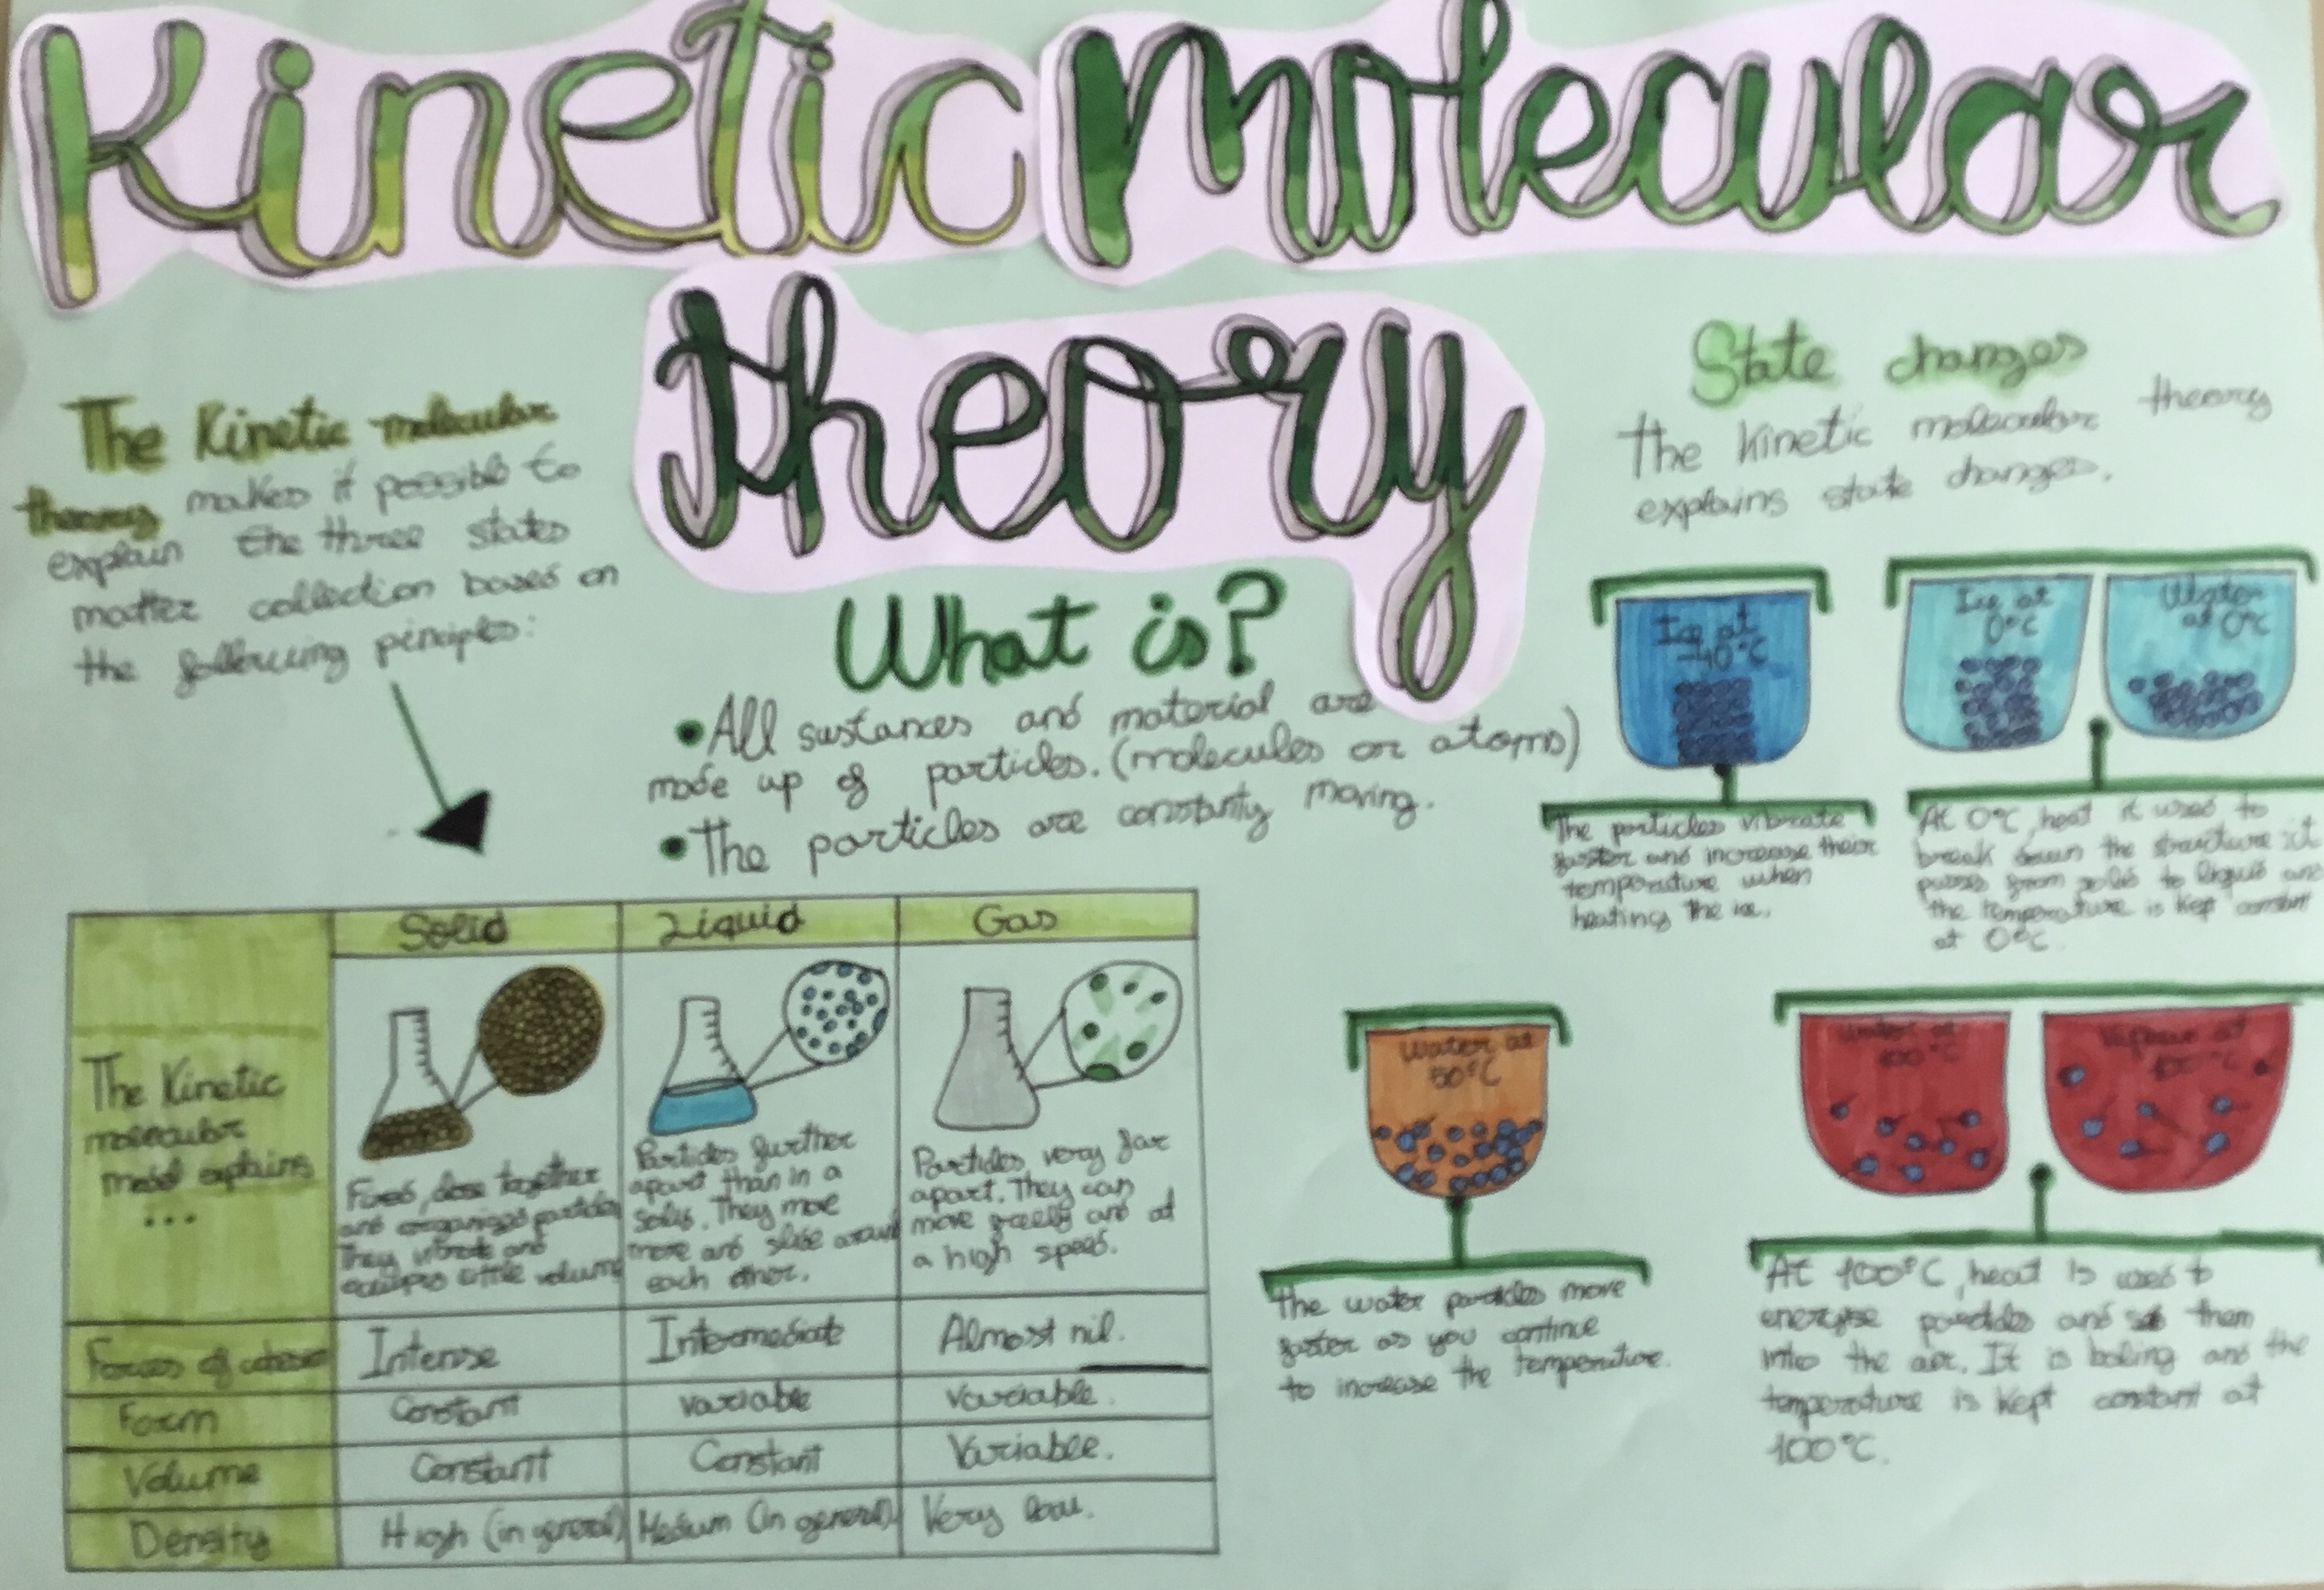 Kinetic molecular
theory
The Kinetic molecular
theory makes it possible to
explain the three states
matter collection based on
the following pinciples:
What is?
• All sustances and material are
made up of particles. (molecules or atoms)
• The particles are constanty moving.
State changes
The kinetic molecular theory
explains state changes.
Ice at
-40°C
The particles vibrate
faster and increase their
temperature when
heating the ice.
Ice at
0°C
Water
at 0°C
At 0°C, heat it used to
break down the structure it
passes from solid to liquid and
the temperature is kept constant
at 0°C.
Water at
50°C
The water particles move
faster as you continue
to increase the temperature.
Water at
100°C
at
100°C
At 100°C, heat is used to
energise particles and them
into the air. It is boling and the
temperature is kept constant at
100°C.
Solid
Liquid
Gas
The Kinetic
molecular
model explains
...
Fixed, close together
and organized particles
They vibrate and
little volume
Particles further
apart than in a
solid. They move
more and slide around
each other.
Particles very far
apart. They can
move freely and at
a high speed.
Forces of
Intense
Intermediate
Almost nil.
Form
Constant
variable
Variable.
Volume
Constant
Constant
Variable.
Density
High (in general)
Medium (in general)
Very low.